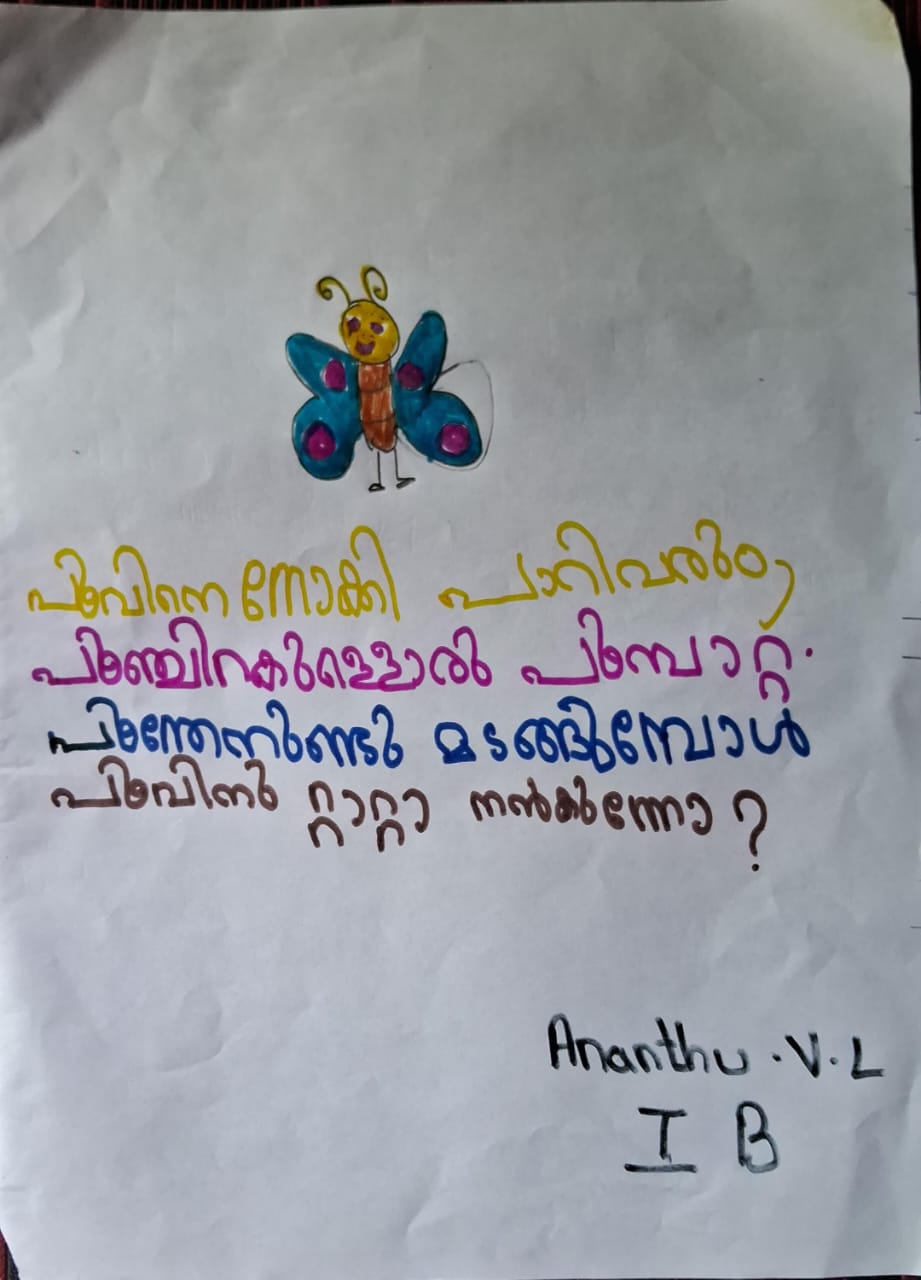 പൂവിനെ നോക്കി പാറിവരും,
പൂഞ്ചിറകുള്ളൊരു പൂമ്പാറ്റ.
പൂന്തേനുണ്ടു മടങ്ങുമ്പോൾ
പൂവിനു റ്റാറ്റാ നൽകുന്നോ?
Ananthu.V.L
I B